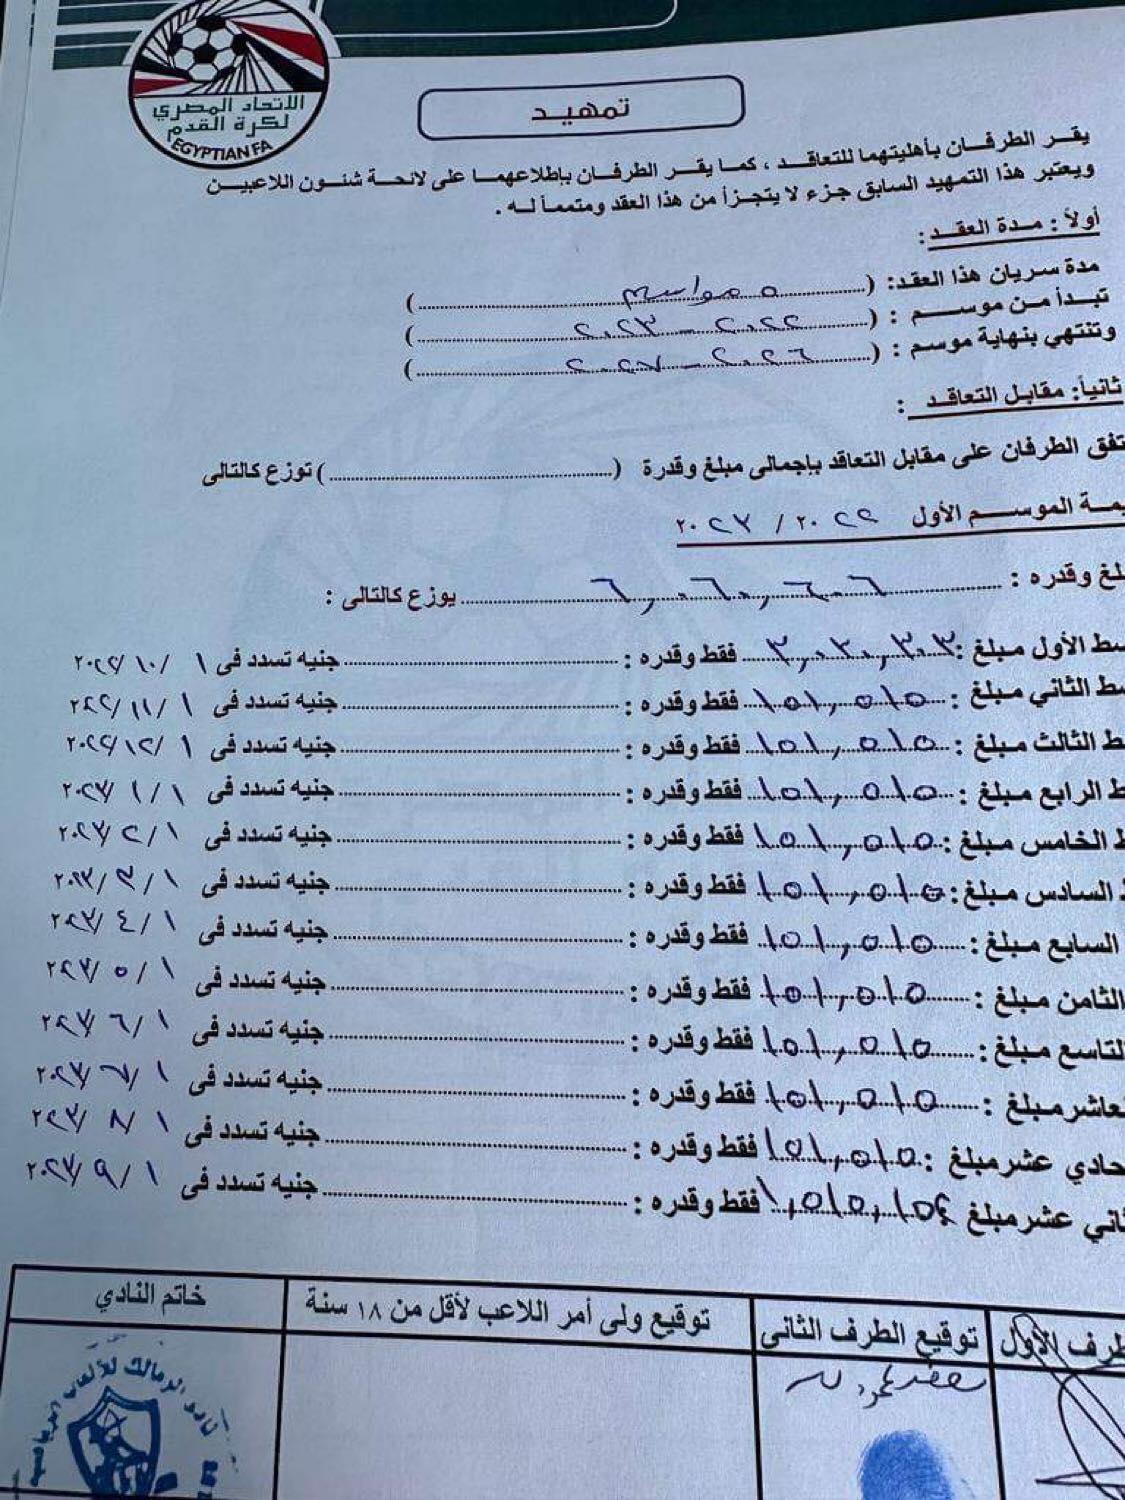 الاتحاد المصري
لكرة القدم
EGYPTIAN FA
تمهيد
يقر الطرفان بأهليتهما للتعاقد ، كما يقر الطرفان بإطلاعهما على لائحة شئون اللاعبين
ويعتبر هذا التمهيد السابق جزء لا يتجزأ من هذا العقد ومتمماً له .
أولاً : مدة العقد :
مدة سريان هذا العقد: ( ٥ مواسم )
تبدأ من موسم : ( ٢٠٢٢ - ٢٠٢٣ )
وتنتهي بنهاية موسم : ( ٢٠٢٦ - ٢٠٢٧ )
ثانياً: مقابل التعاقد :
تفق الطرفان على مقابل التعاقد بإجمالى مبلغ وقدرة ( ) توزع كالتالى
يمة الموسم الأول ٢٠٢٢ / ٢٠٢٣
لغ وقدره : ٦,٠٦٠,٦٠٦ يوزع كالتالى :
سط الأول مبلغ : ٣,٠٣٠,٣٠٣ فقط وقدره : جنيه تسدد فى ١ /١٠ /٢٠٢٢
سط الثاني مبلغ : ١٥١,٥١٥ فقط وقدره : جنيه تسدد فى ١ /١١ /٢٠٢٢
ط الثالث مبلغ : ١٥١,٥١٥ فقط وقدره : جنيه تسدد فى ١ /١٢ /٢٠٢٢
ط الرابع مبلغ : ١٥١,٥١٥ فقط وقدره : جنيه تسدد فى ١ /١ /٢٠٢٣
ط الخامس مبلغ : ١٥١,٥١٥ فقط وقدره : جنيه تسدد فى ١ /٢ /٢٠٢٣
السادس مبلغ : ١٥١,٥١٥ فقط وقدره : جنيه تسدد فى ١ /٣ /٢٠٢٣
السابع مبلغ : ١٥١,٥١٥ فقط وقدره : جنيه تسدد فى ١ /٤ /٢٠٢٣
الثامن مبلغ : ١٥١,٥١٥ فقط وقدره : جنيه تسدد فى ١ /٥ /٢٠٢٣
لتاسع مبلغ : ١٥١,٥١٥ فقط وقدره : جنيه تسدد فى ١ /٦ /٢٠٢٣
عاشر مبلغ : ١٥١,٥١٥ فقط وقدره : جنيه تسدد فى ١ /٧ /٢٠٢٣
حادي عشر مبلغ : ١٥١,٥١٥ فقط وقدره : جنيه تسدد فى ١ /٨ /٢٠٢٣
ثاني عشر مبلغ ١,٥١٥,١٥٤ فقط وقدره : جنيه تسدد فى ١ /٩ /٢٠٢٣
طرف الأول توقيع الطرف الثانى توقيع ولى أمر اللاعب لأقل من ١٨ سنة خاتم النادي
نادي الزمالك للألعاب الرياضية